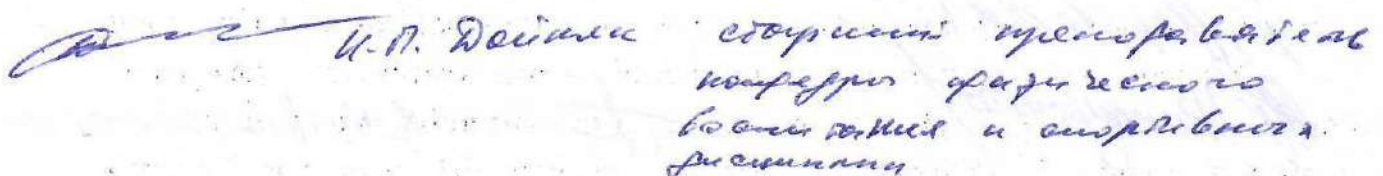 И.П. Дойняк старший преподаватель
кафедры физического
воспитания и спортивных
дисциплин